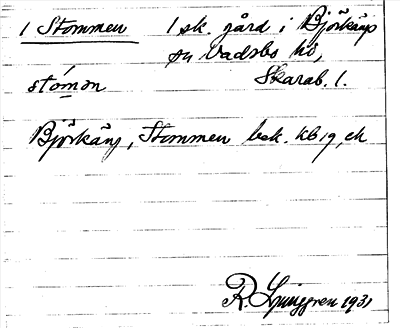 1 Stommen 1 sk. gård i Björkäng
sn Vadsbo hd,
stómən Skarab. l.
Björkäng, Stommen bek. kb 19, ek
R. Ljunggren 1931